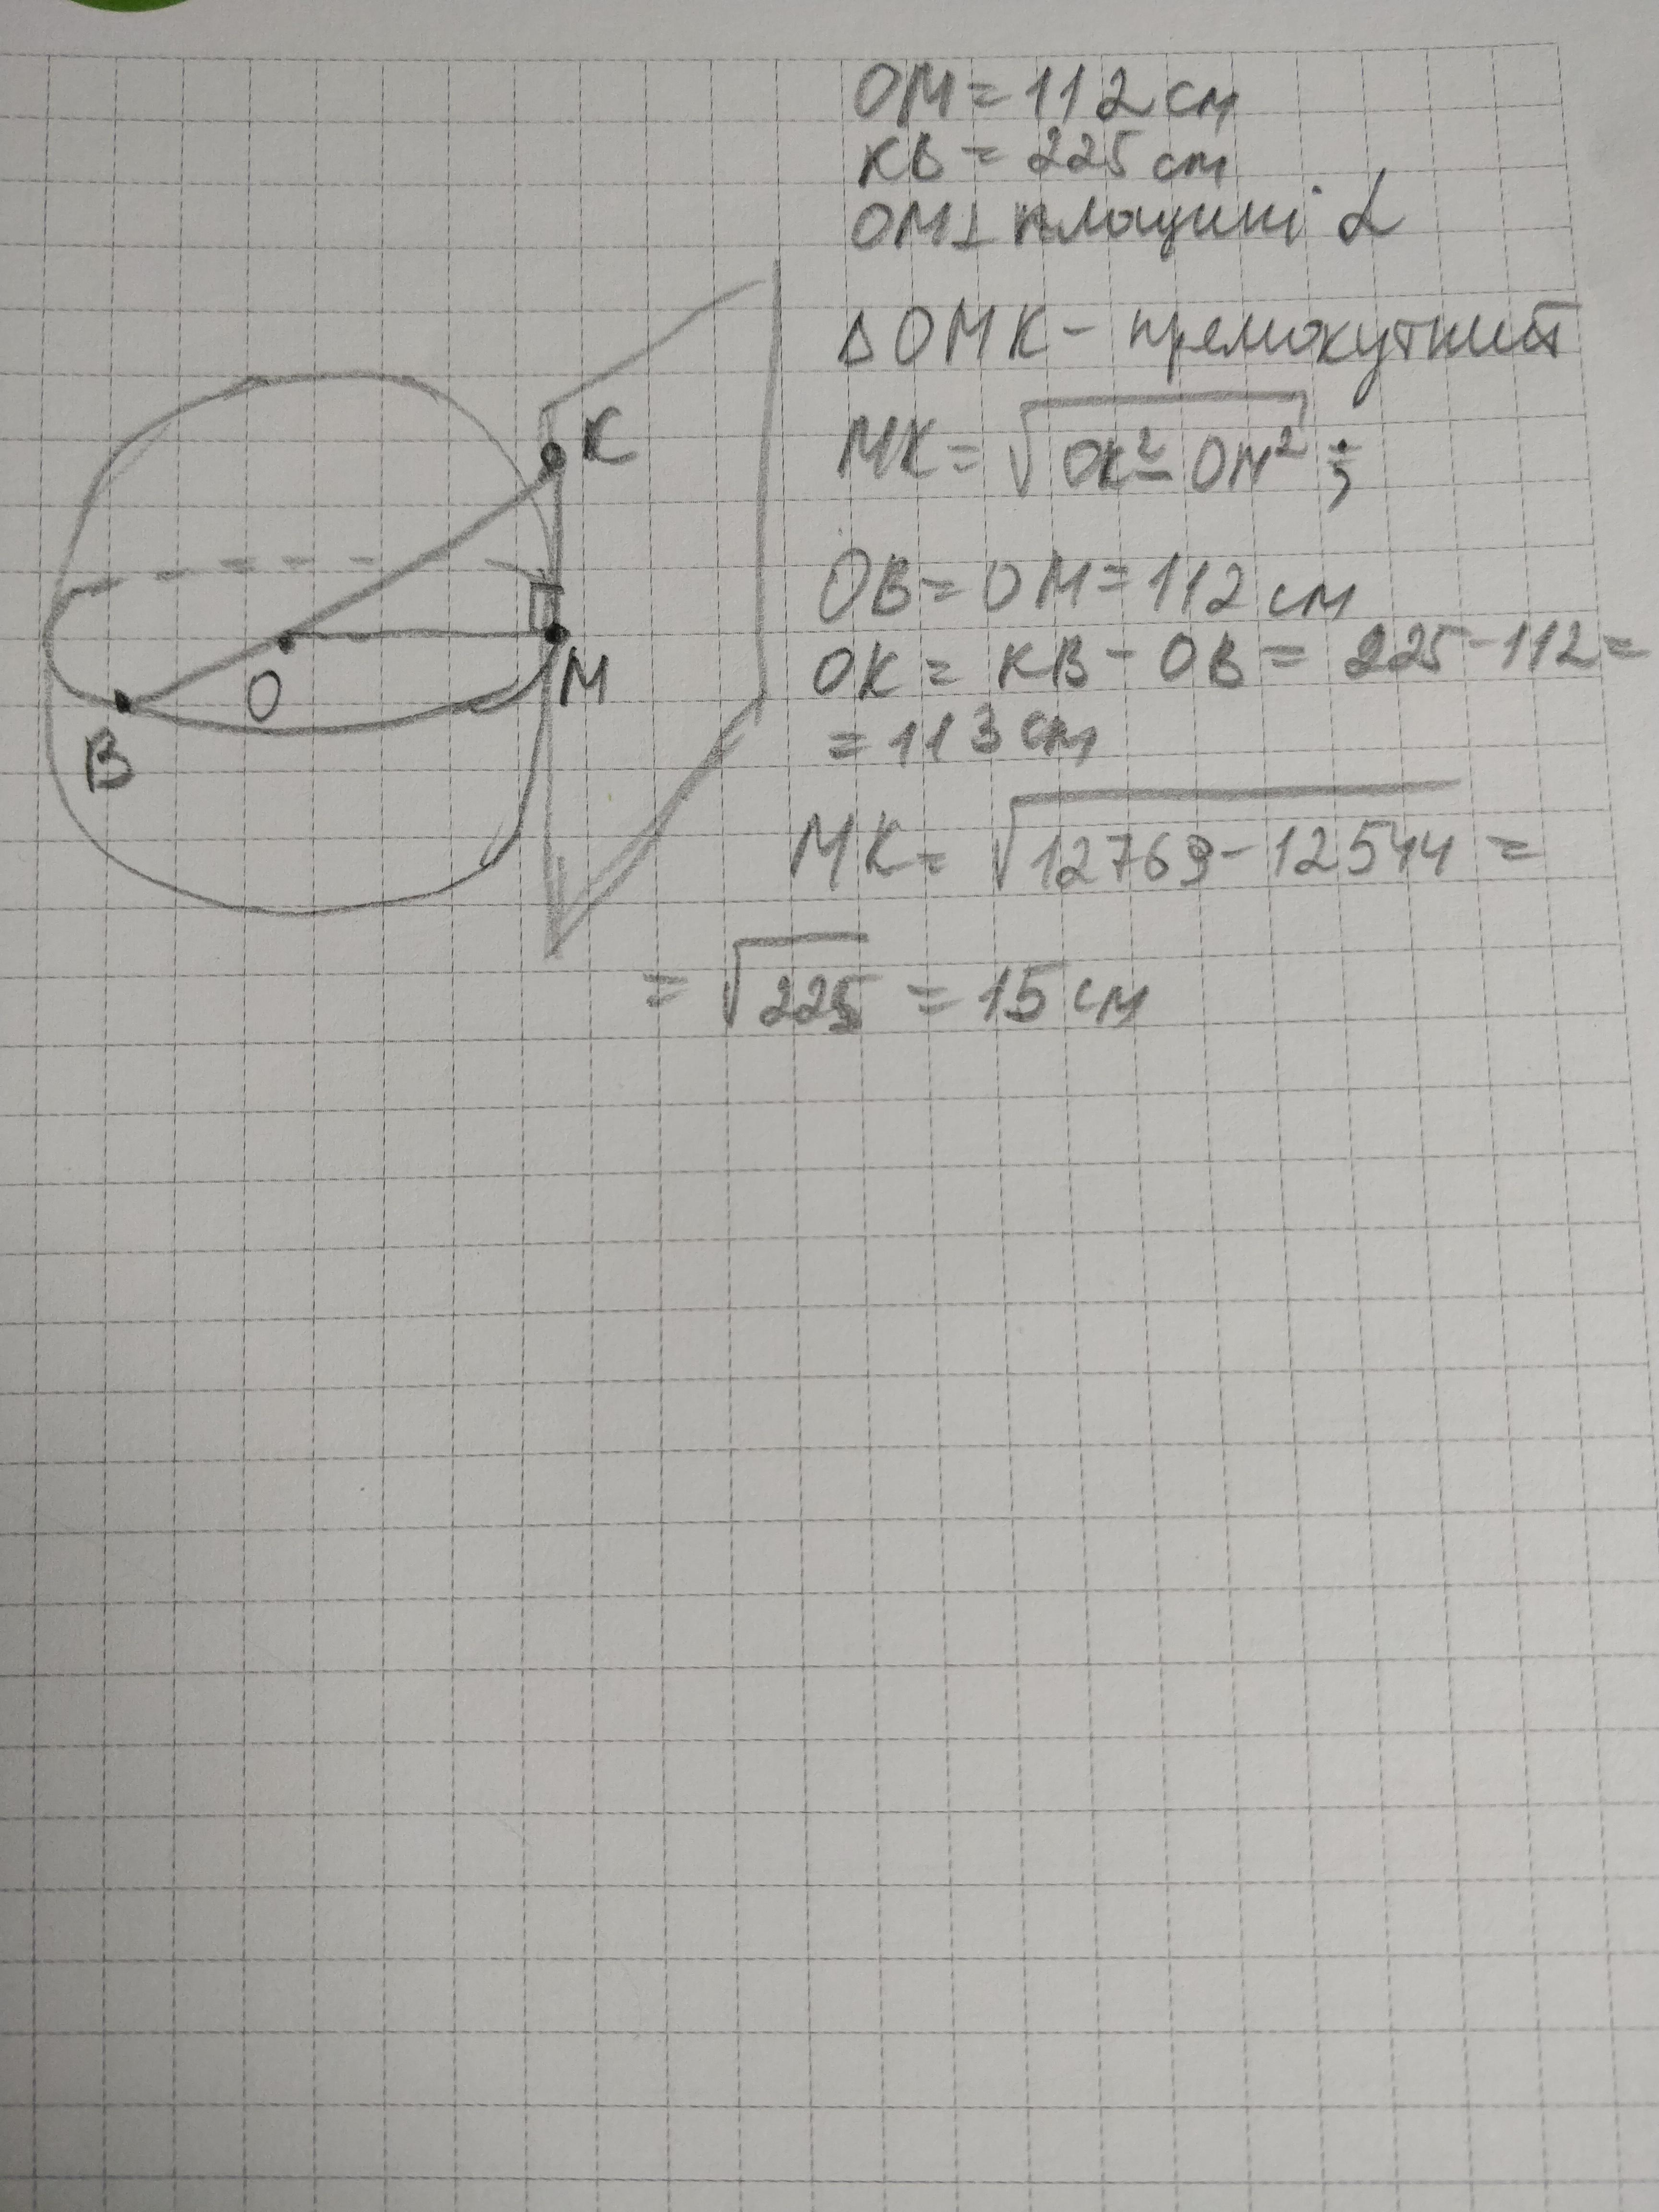 OM = 112 см
KB = 225 см
OM ⊥ площині α
Δ OMK - прямокутний
MK = √OK² - OM² ;
K
OB = OM = 112 см
OK = KB - OB = 225 - 112 =
= 113 см
O
M
B
MK = √12769 - 12544 =
= √225 = 15 см